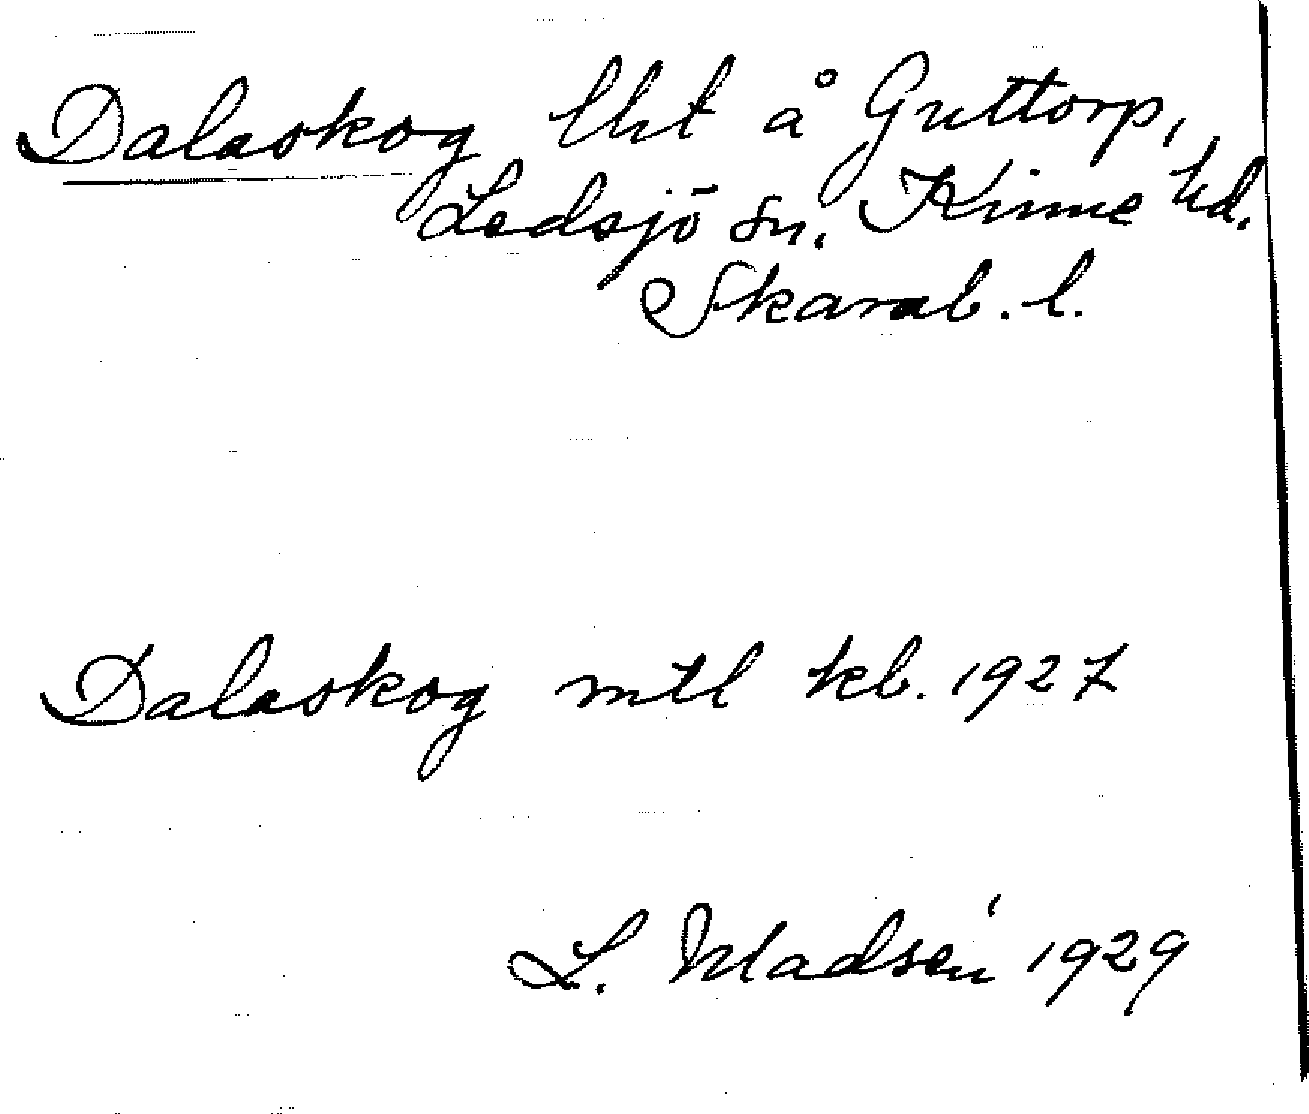 Dalaskog lht å Guttorp,
Ledsjö sn, Kinne hd.
Skarab. l.
Dalaskog mtl kb. 1927
L. Madsén 1929